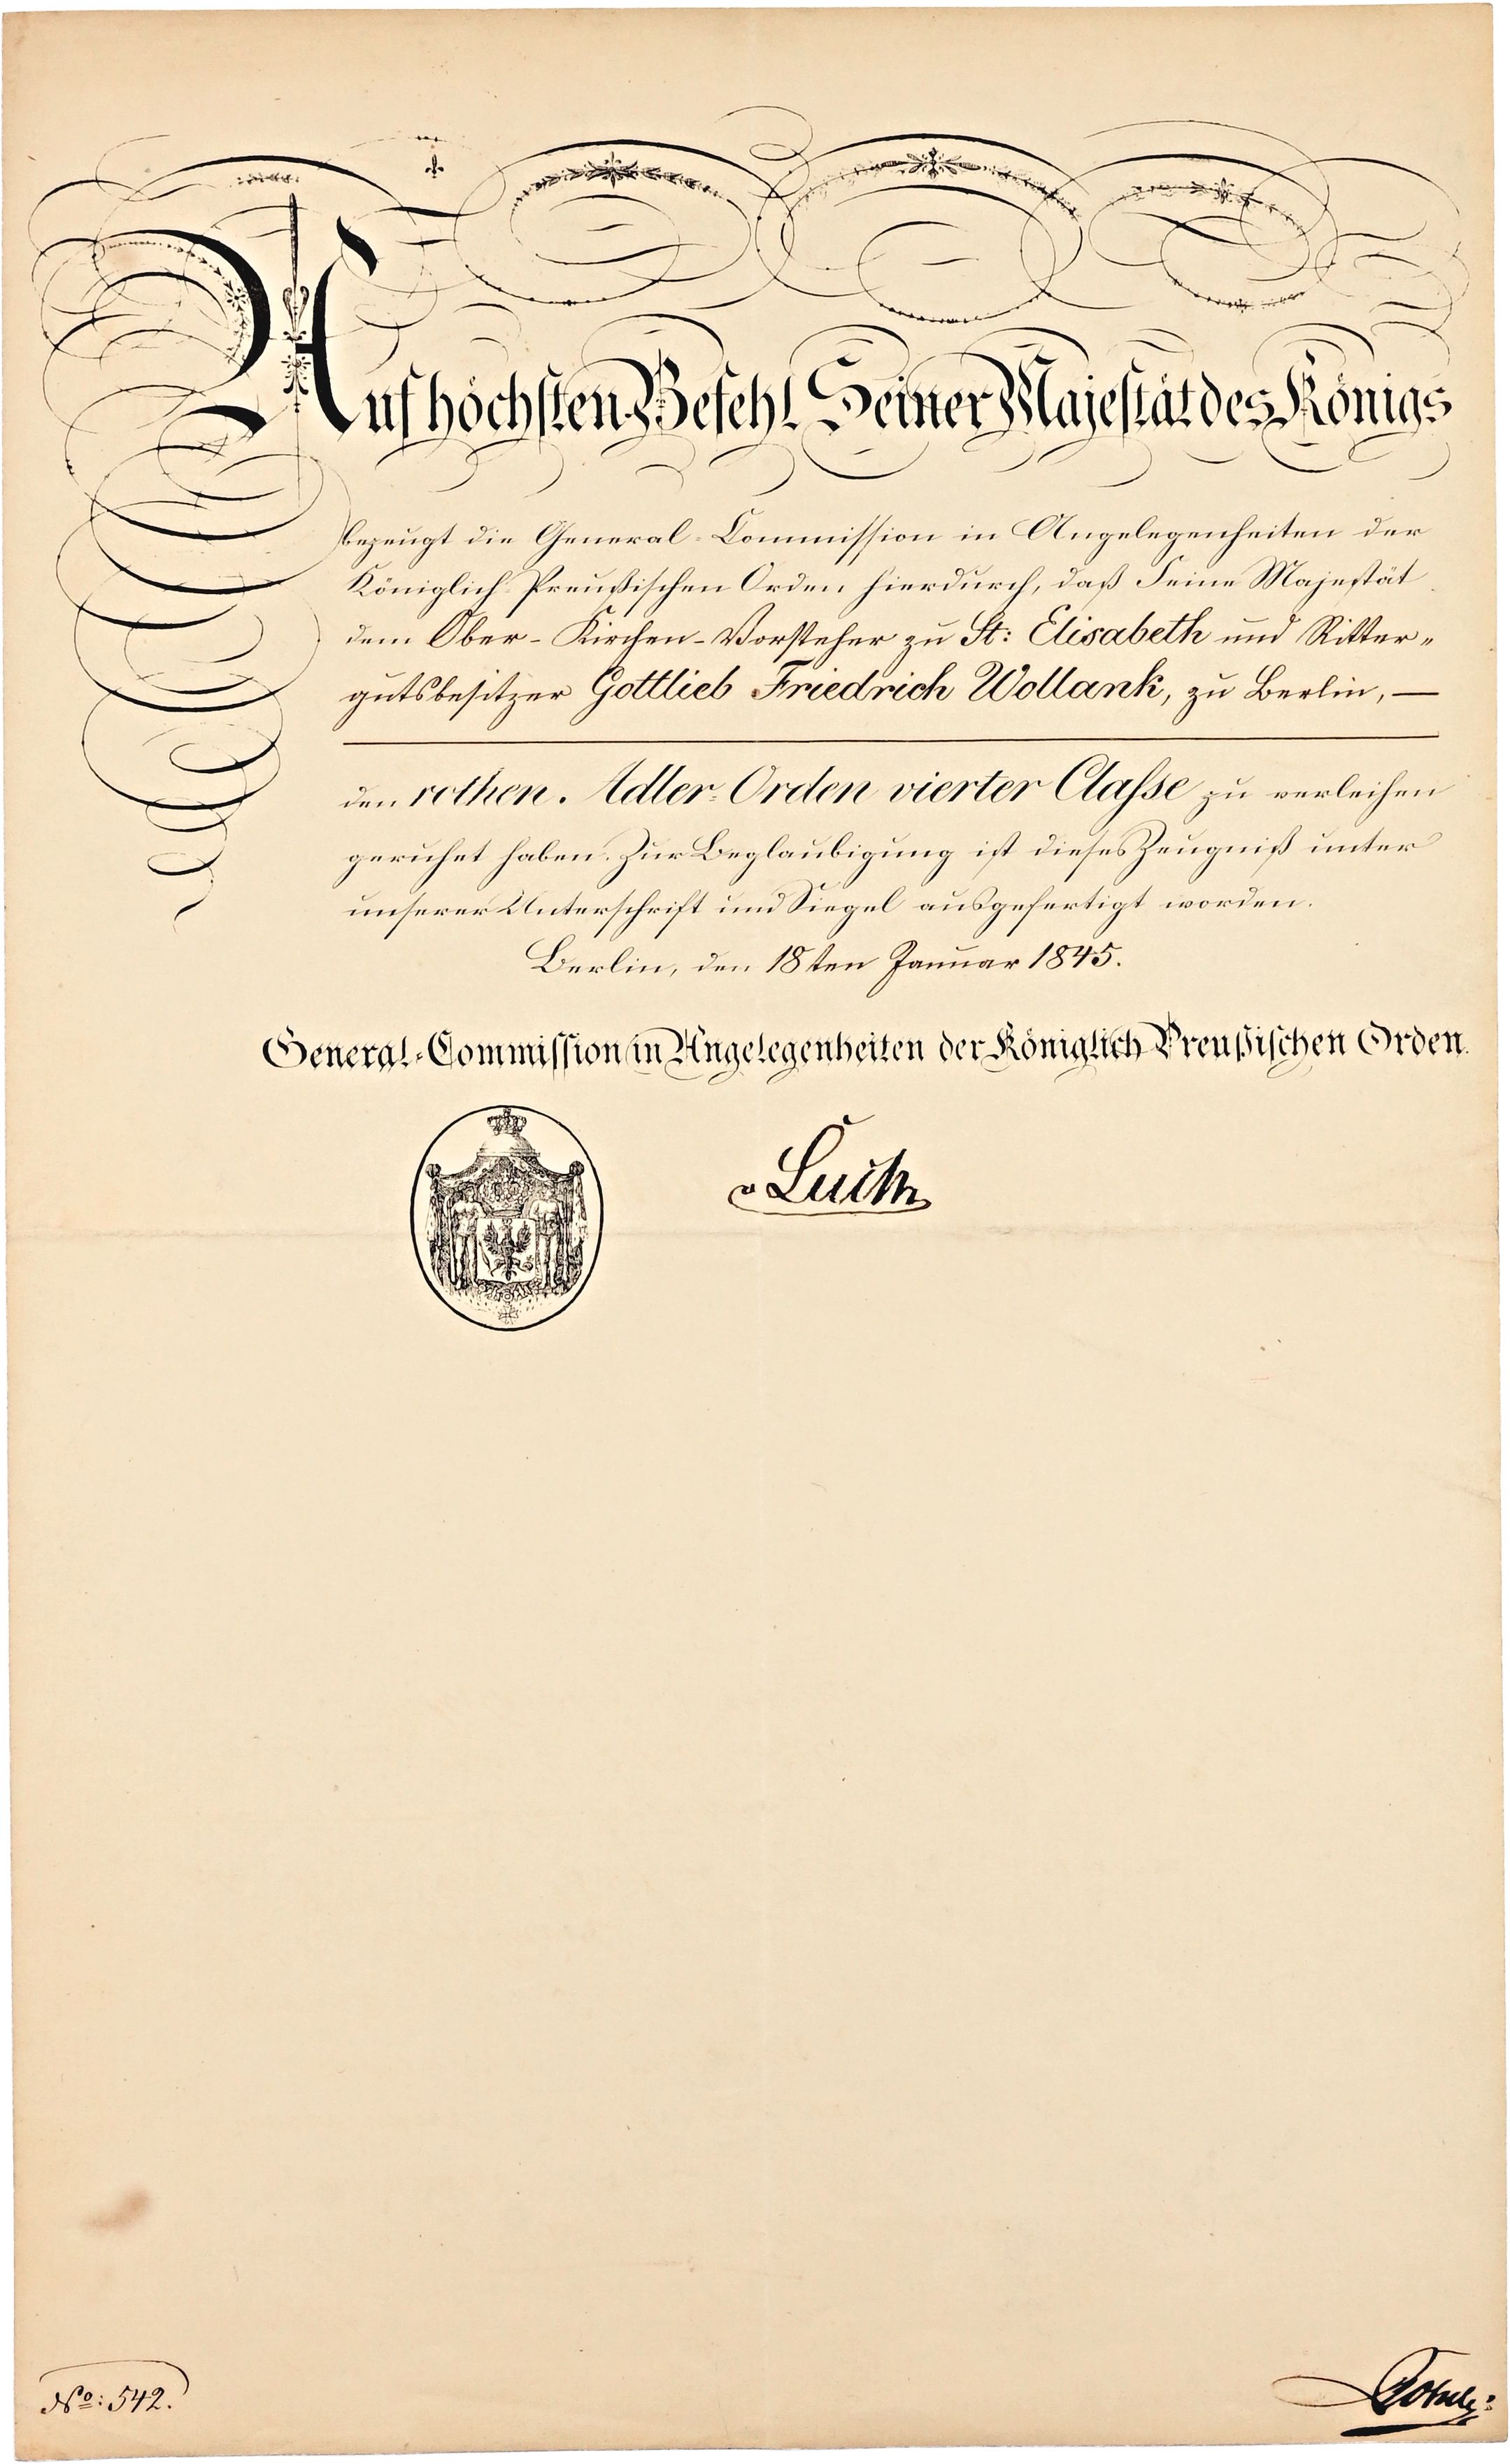 Auf höchsten Befehl Seiner Majestät des Königs
bezeugt die General-Commission in Angelegenheiten der
Königlich Preußischen Orden hierdurch, daß Seine Majestät
dem Ober-Kirchen-Vorsteher zu St: Elisabeth und Ritter-
gutsbesitzer Gottlieb Friedrich Wollank, zu Berlin, —
den rothen Adler-Orden vierter Classe zu verleihen
geruhet haben. Zur Beglaubigung ist dieses Zeugniß unter
unserer Unterschrift und Siegel ausgefertigt worden.
Berlin, den 18ten Januar 1845.
General-Commission in Angelegenheiten der Königlich Preußischen Orden.
No: 542.